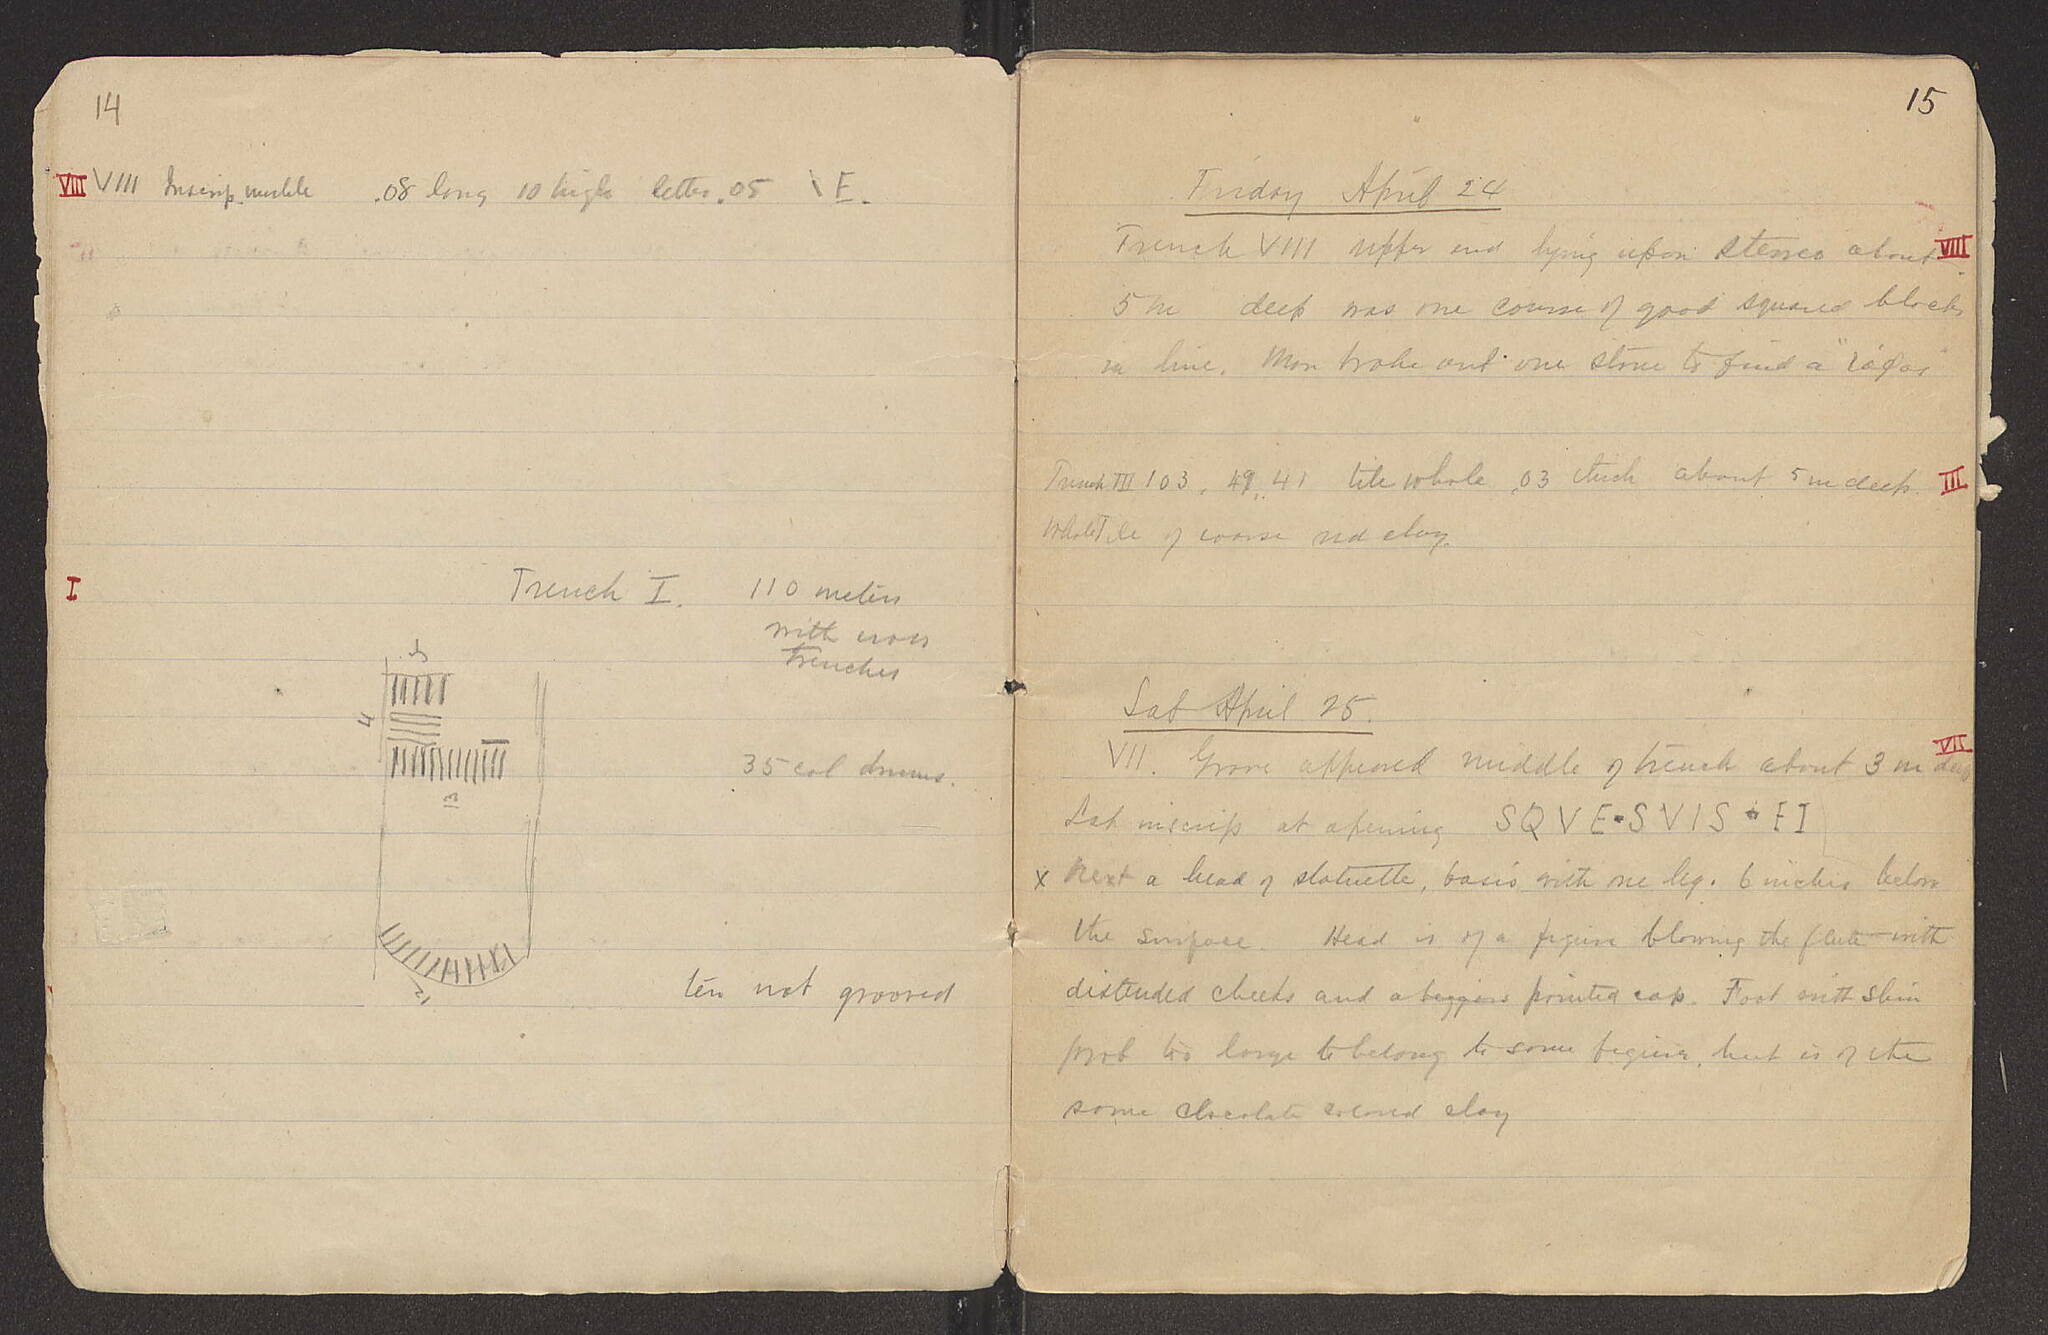 14
VIII VIII Inscrip. marble .08 long 10 high letter .05 \ E.
I Trench I. 110 meters
with cross
trenches
5
4
35 col drums.
13
12
ten not grooved
15
Friday April 24
Trench VIII upper end lying upon stereo about VIII
5 m deep was one course of good squared blocks
in line. Men broke out one stone to find a "τάφος
Trench III 103, 49, 41 tile whole .03 thick about 5 m deep. III
whole Tile of coarse red clay.
Sat April 25.
VII. Grave appeared middle of trench about 3 m deep VII
Lat inscrip at opening SQVE•SVIS•EI
x Next a head of statuette, basis with one leg. 6 inches below
the surface. Head is of a figure blowing the flute with
distended cheeks and a beggars pointed cap. Foot with shin
prob too large to belong to same figure, but is of the
same chocolate colored clay